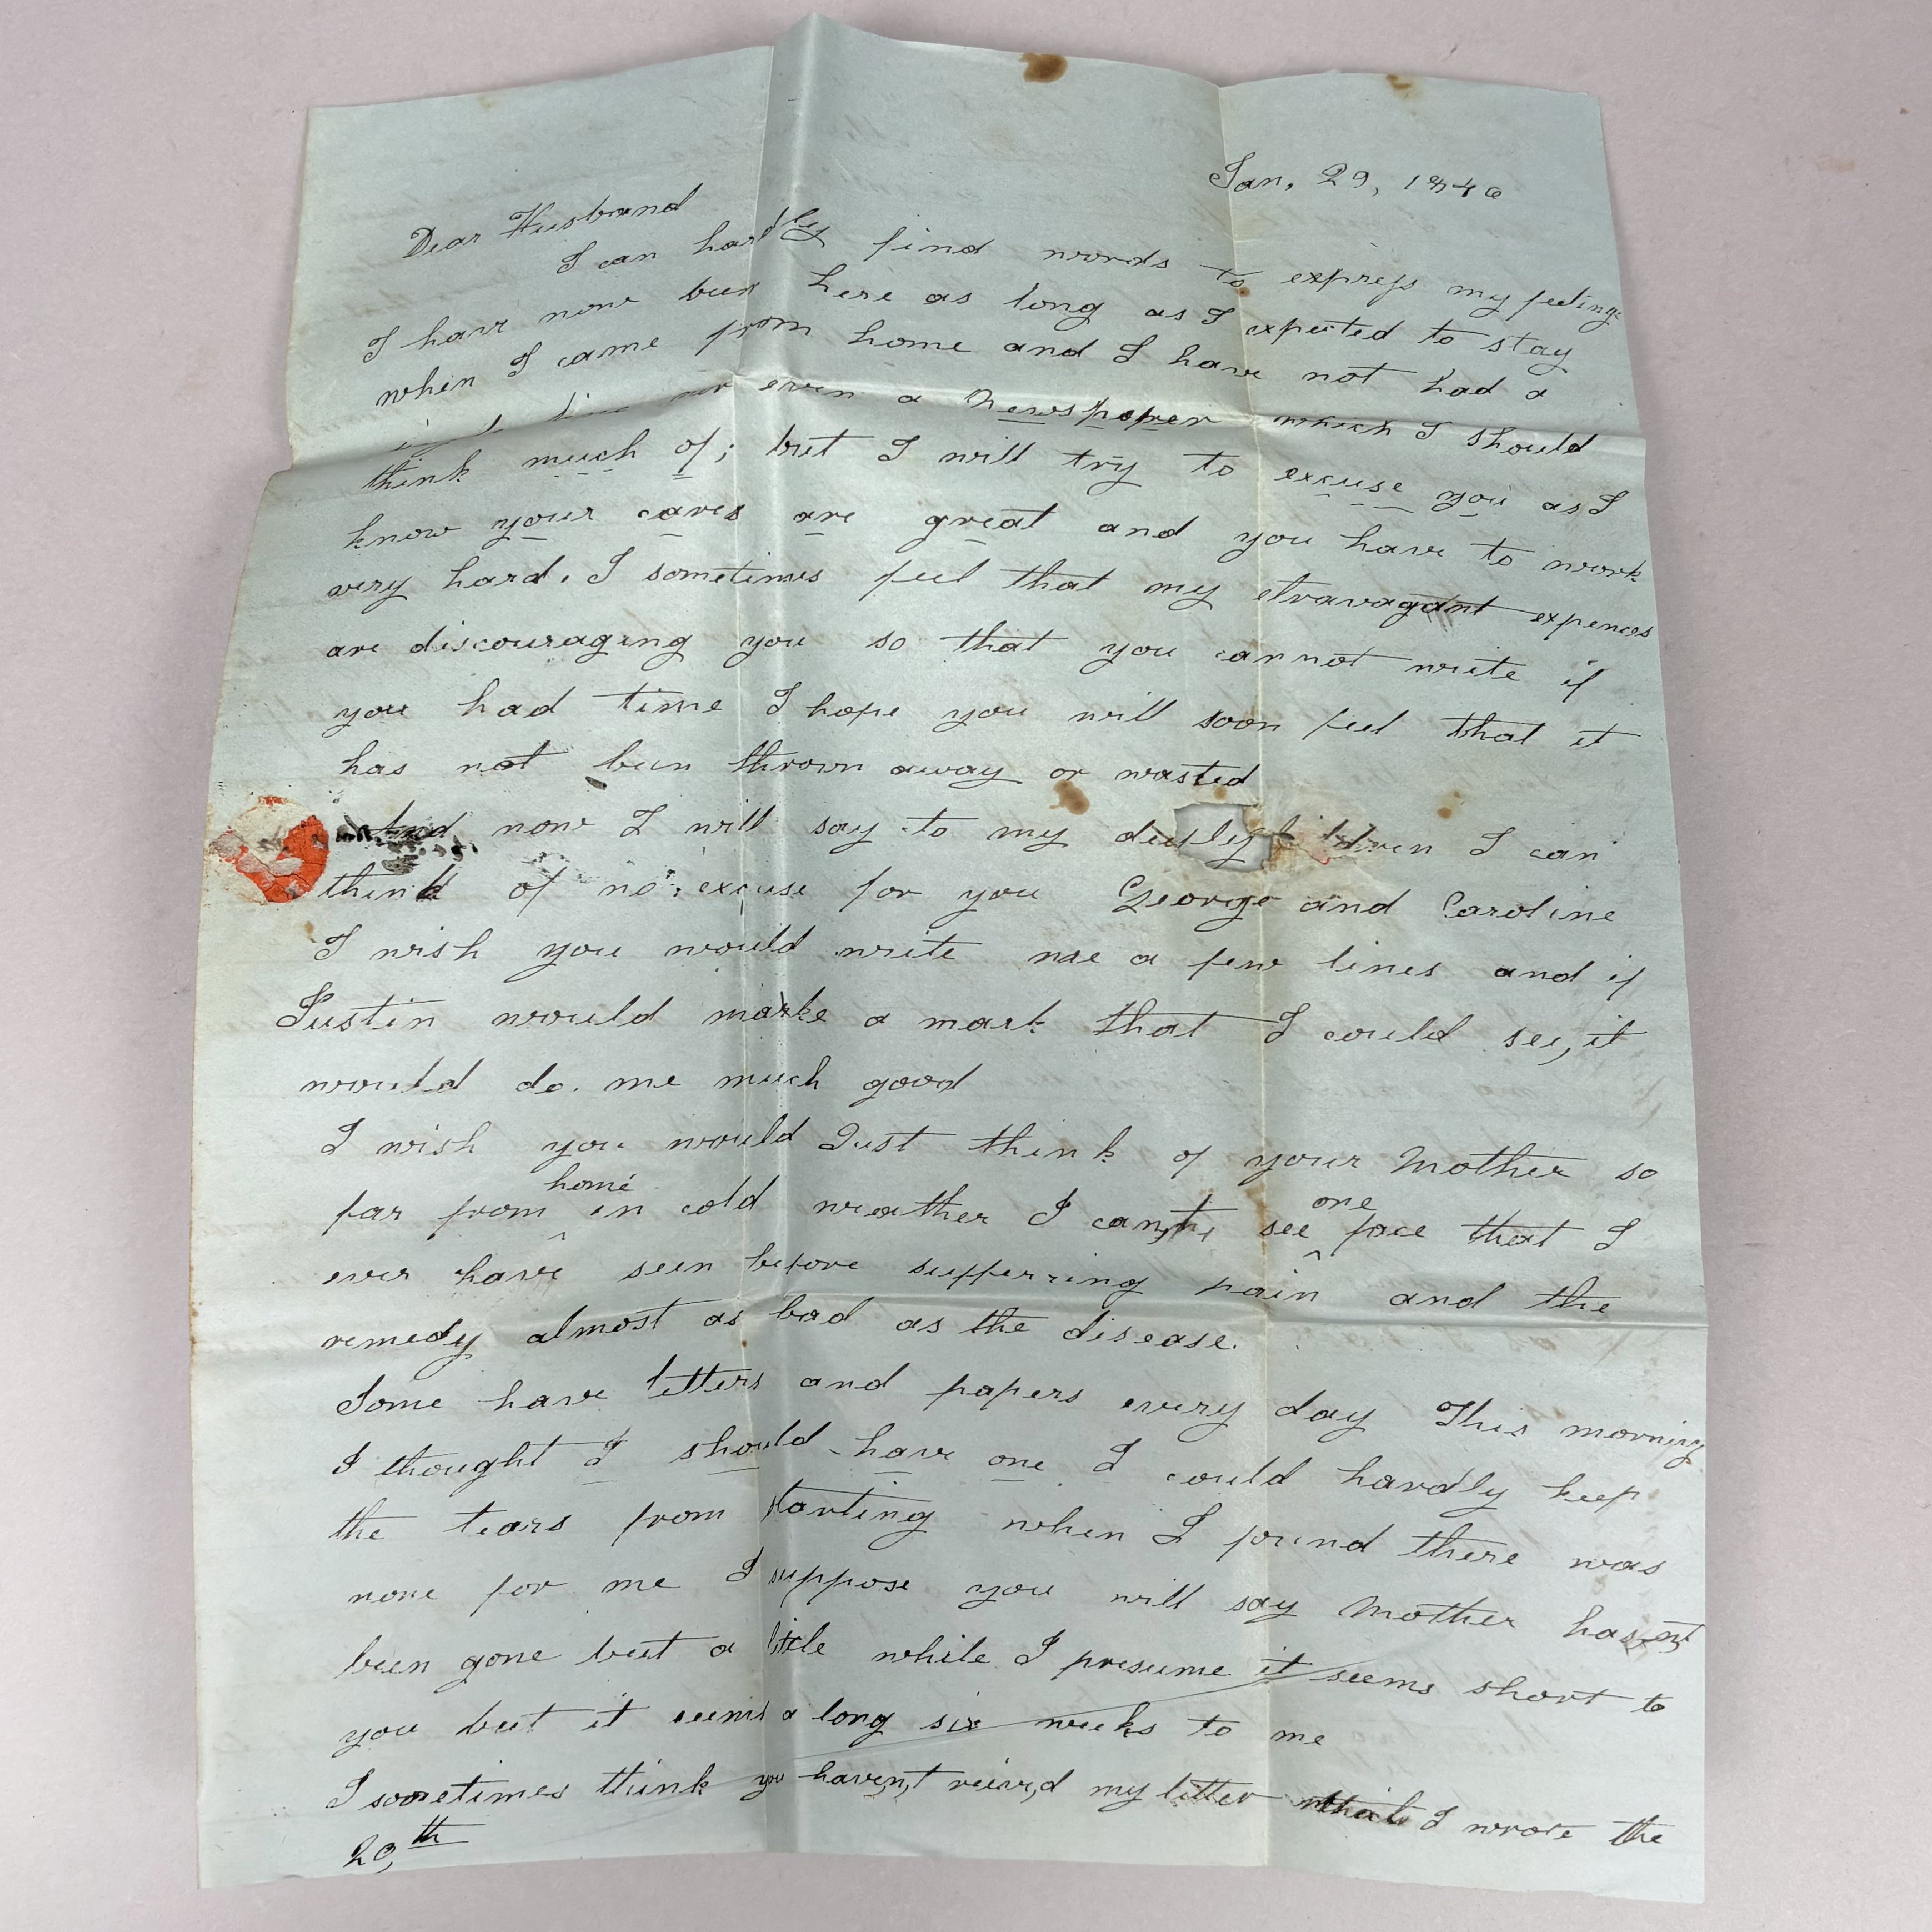 Jan. 29, 1846
Dear Husband
I can hardly find words to express my feelings
I have now been here as long as I expected to stay
when I came from home and I have not had a
line nor even a Newspaper which I should
think much of; but I will try to excuse you as I
know your cares are great and you have to work
very hard. I sometimes feel that my etravagant expences
are discouraging you so that you cannot write if
you had time I hope you will soon feel that it
has not been thrown away or wasted
And now I will say to my I can
think of no excuse for you George and Caroline
I wish you would write me a few lines and if
Justin would marke a mark that I could see, it
would do. me much good
I wish you would Just think of your Mother so
far from home in cold weather I can,t, see one face that I
ever have seen before sufferring pain and the
remedy almost as bad as the disease.
Some have letters and papers every day This morning
I thought I should have one I could hardly keep
the tears from starting when I found there was
none for me I suppose you will say Mother has,nt
been gone but a little while I presume it seems short to
you but it seems a long six weeks to me
I sometimes think you haven,t reciev,d my letter that I wrote the
20,th